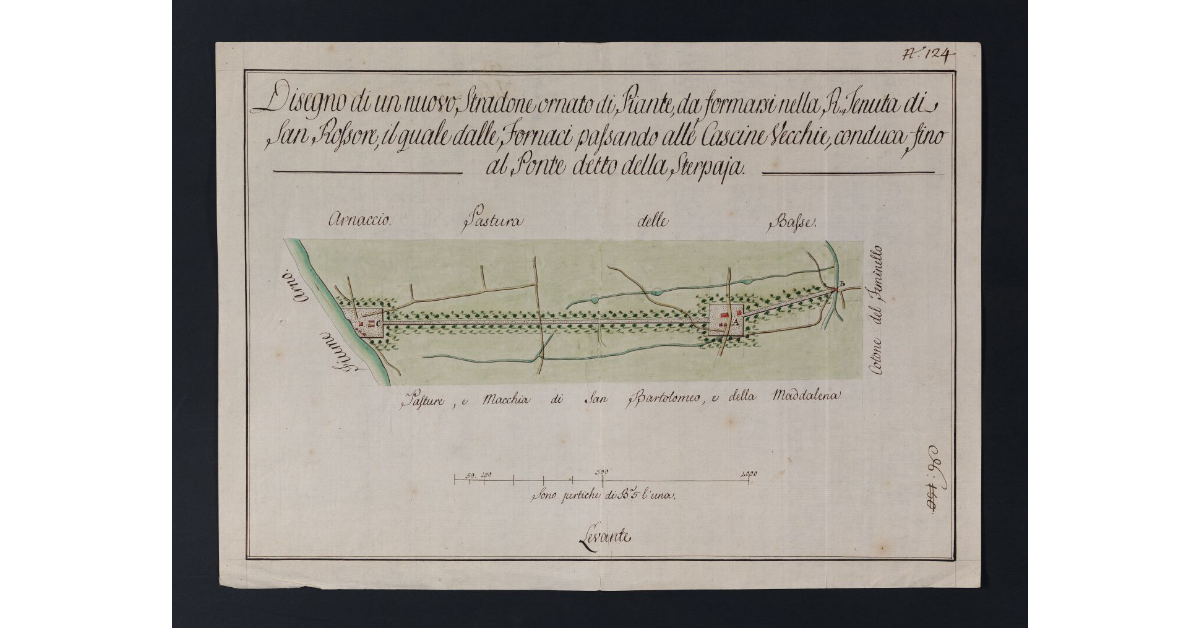 N.° 124
Disegno di un nuovo Stradone ornato di Piante, da formarsi nella R. Tenuta di
San Rossore, il quale dalle Fornaci passando alle Cascine Vecchie, conduca fino
al Ponte detto della Sterpaja.
Arnaccio. Pastura delle Basse.
Fiume Arno.
Cotone del Feminello
A
Pasture, e Macchia di San Bartolomeo, e della Maddalena
50. 100 500 1000
Sono pertiche di B.a 5 l'una.
Levante